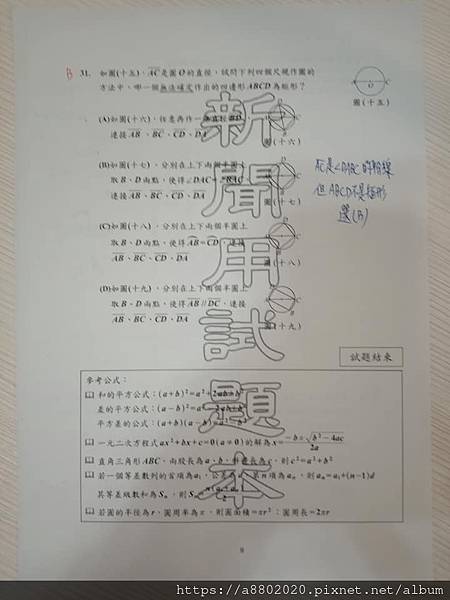 B 31. 如圖(十五)，AC是圓O的直徑，試問下列四個尺規作圖的
方法中，哪一個無法確定作出的四邊形ABCD為矩形？
圖(十五)
(A)如圖(十六)，任意再作一直徑BD，
連接AB、BC、CD、DA
圖(十六)
(B)如圖(十七)，分別在上下兩個半圓上
取B、D兩點，使得∠DAC=∠BAC，
連接AB、BC、CD、DA
圖(十七)
AC是∠DABC的
但ABCD不是矩形
選(B)
(C)如圖(十八)，分別在上下兩個半圓上
取B、D兩點，使得AB=CD，連接
AB、BC、CD、DA
圖(十八)
(D)如圖(十九)，分別在上下兩個半圓上
取B、D兩點，使得AB//DC，連接
AB、BC、CD、DA
圖(十九)
新聞用試題本
試題結束
參考公式：
和的平方公式：(a+b)²=a²+2ab+b²
差的平方公式：(a-b)²=a²-2ab+b²
平方差的公式：(a+b)(a-b)=a²-b²
一元二次方程式ax²+bx+c=0(a≠0)的解為x=(-b±√(b²-4ac))/2a
直角三角形ABC，兩股長為a、b，斜邊長為c，則c²=a²+b²
若一個等差數列的首項為a₁，公差為d，第n項為aₙ，則aₙ=a₁+(n-1)d
其等差級數和為Sₙ，則Sₙ=n(a₁+aₙ)/2
若圓的半徑為r，圓周率為π，則圓面積=πr²；圓周長=2πr
9
https://a8802020.pixnet.net/album